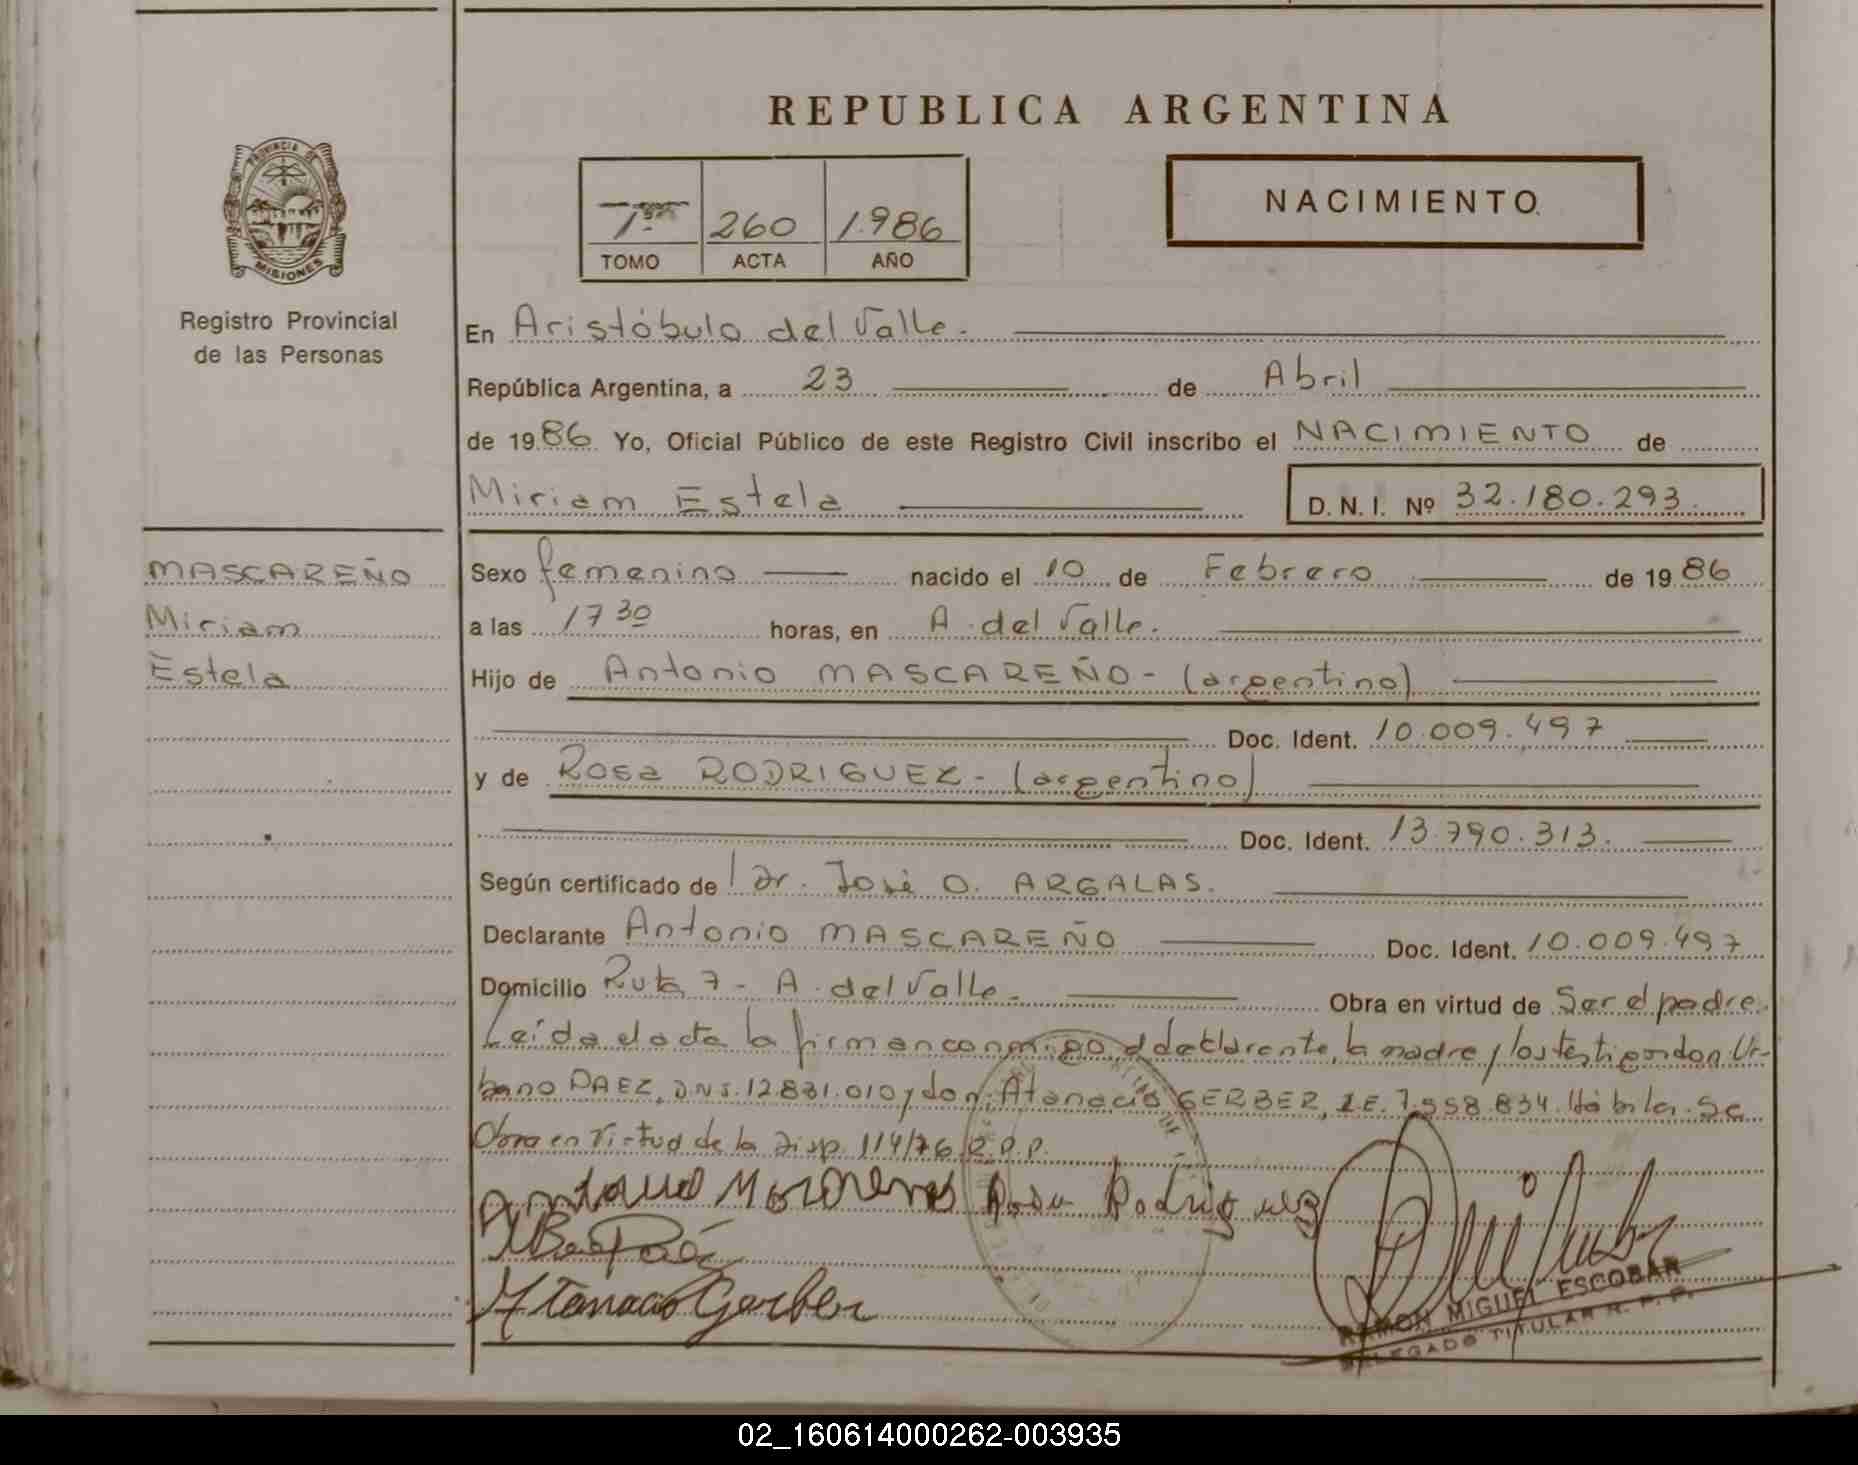 REPUBLICA ARGENTINA
PROVINCIA DE
MISIONES
Registro Provincial
de las Personas
1º 260 1.986
TOMO ACTA AÑO
NACIMIENTO
En Aristóbulo del Valle.
República Argentina, a 23 de Abril
de 1986 Yo, Oficial Público de este Registro Civil inscribo el NACIMIENTO de
Miriam Estela D. N. I. Nº 32.180.293.
MASCAREÑO
Miriam
Estela
Sexo femenino nacido el 10 de Febrero de 1986
a las 17 30 horas, en A. del Valle.
Hijo de Antonio MASCAREÑO - (argentino)
Doc. Ident. 10.009.497
y de Rosa RODRIGUEZ - (argentino)
Doc. Ident. 13.790.313.
Según certificado de Dr. José O. ARGALAS.
Declarante Antonio MASCAREÑO Doc. Ident. 10.009.497
Domicilio Ruta 7 - A. del Valle. Obra en virtud de Ser el padre.
Leída el acta la firman conmigo el declarante, la madre y los testigos don Ur-
bano PAEZ, DNI. 12.831.010 y don Atanacio GERBER, LE. 7.558.834. Hábiles. Se
Obra en Virtud de la Disp. 114/76 R.P.P.
Rosa Rodriguez
Atanacio Gerber
RAMON MIGUEL ESCOBAR
DELEGADO TITULAR R. P. P.
02_160614000262-003935